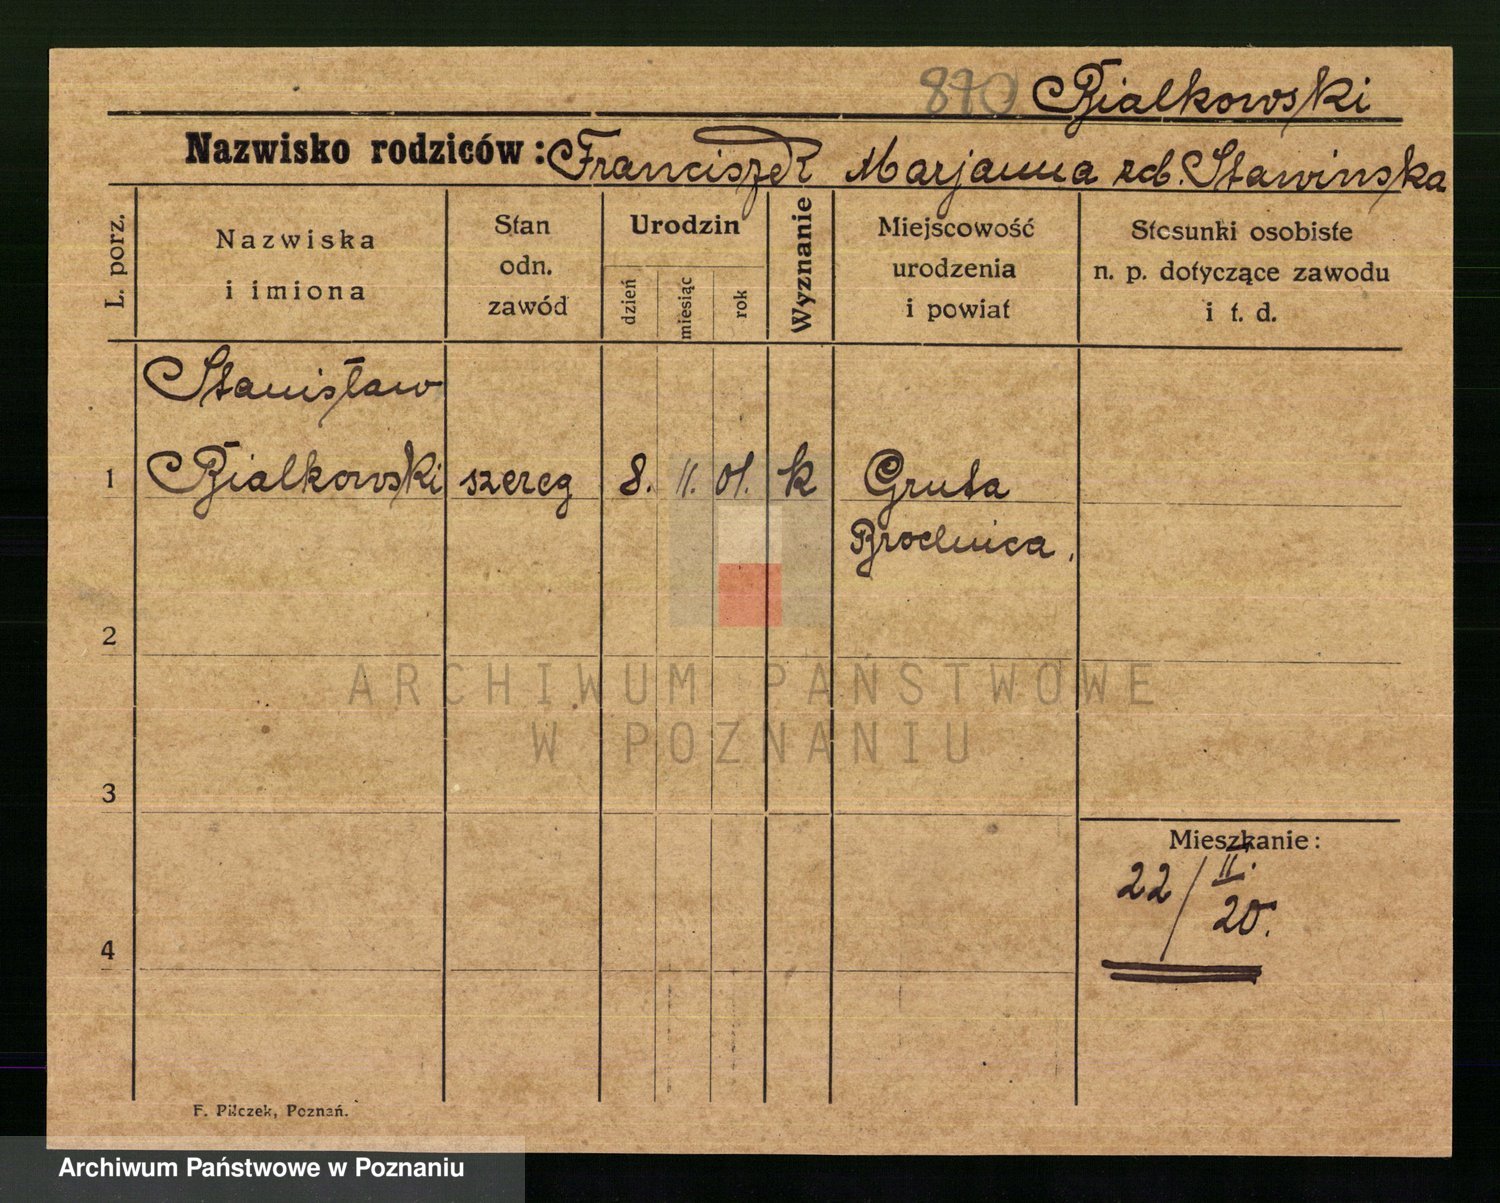 890 Bialkowski
Nazwisko rodziców: Franciszek Marjanna zd. Stawinska
L. porz.
Nazwiska
i imiona
Stan
odn.
zawód
Urodzin
dzień
miesiąc
rok
Wyznanie
Miejscowość
urodzenia
i powiat
Stosunki osobiste
n. p. dotyczące zawodu
i t. d.
Stanisław
1 Bialkowski szereg 8. 11. 01. k Gruta
Brodnica.
2
ARCHIWUM PAŃSTWOWE
W POZNANIU
3
Mieszkanie:
22/II.
20.
4
F. Pilczek, Poznań.
Archiwum Państwowe w Poznaniu